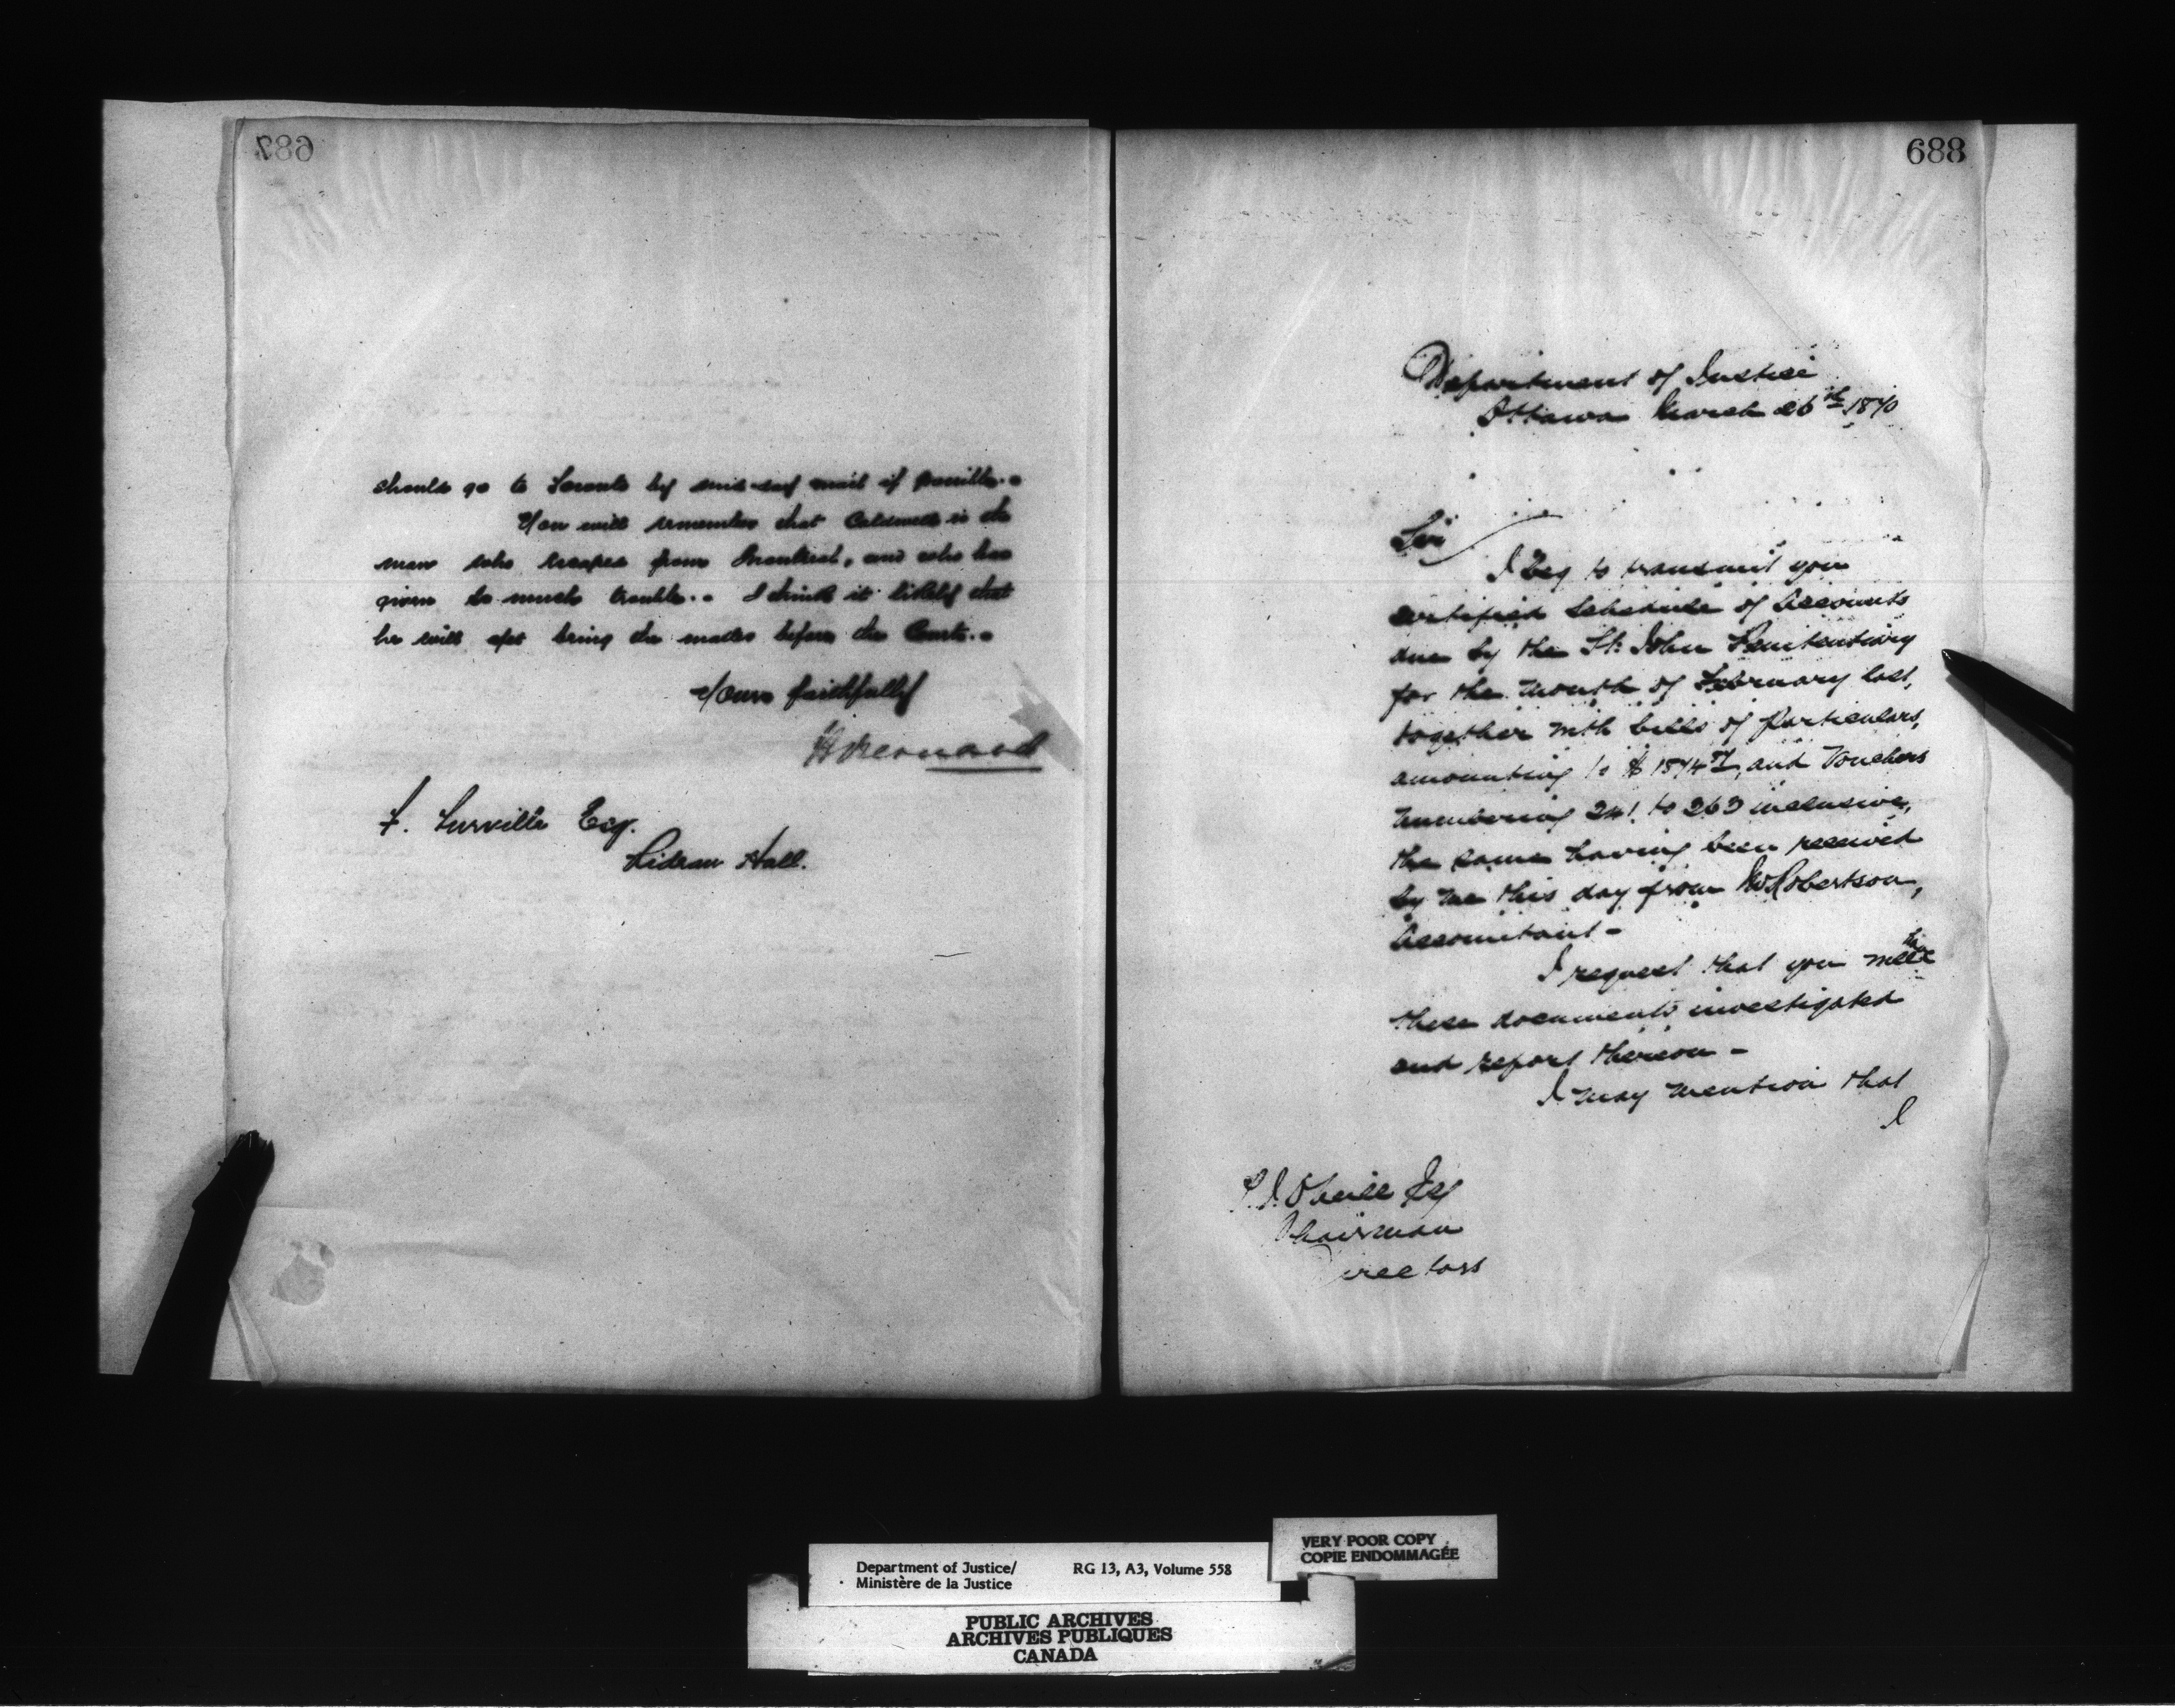 687
should go to Toronto by mid-day mail if possible.
You will remember that Caldwell is the
man who escaped from Montreal, and who has
given so much trouble. I think it likely that
he will yet bring the matter before the Courts.
Yours faithfully
H Bernard
F. Turville Esq.
Rideau Hall.
688
Department of Justice
Ottawa March 26th 1870
Sir
I beg to transmit you
certified Schedule of Accounts
due by the St. John Penitentiary
for the month of February last,
together with bills of Particulars,
amounting to $ and Vouchers
numbering 241 to 263 inclusive,
the same having been received
by me this day from Robertson,
Accountant -
I request that you will have
these documents investigated
and report thereon -
I may mention that
I
Esq
Chairman
Directors
Department of Justice/
Ministère de la Justice
RG 13, A3, Volume 558
VERY POOR COPY
COPIE ENDOMMAGÉE
PUBLIC ARCHIVES
ARCHIVES PUBLIQUES
CANADA